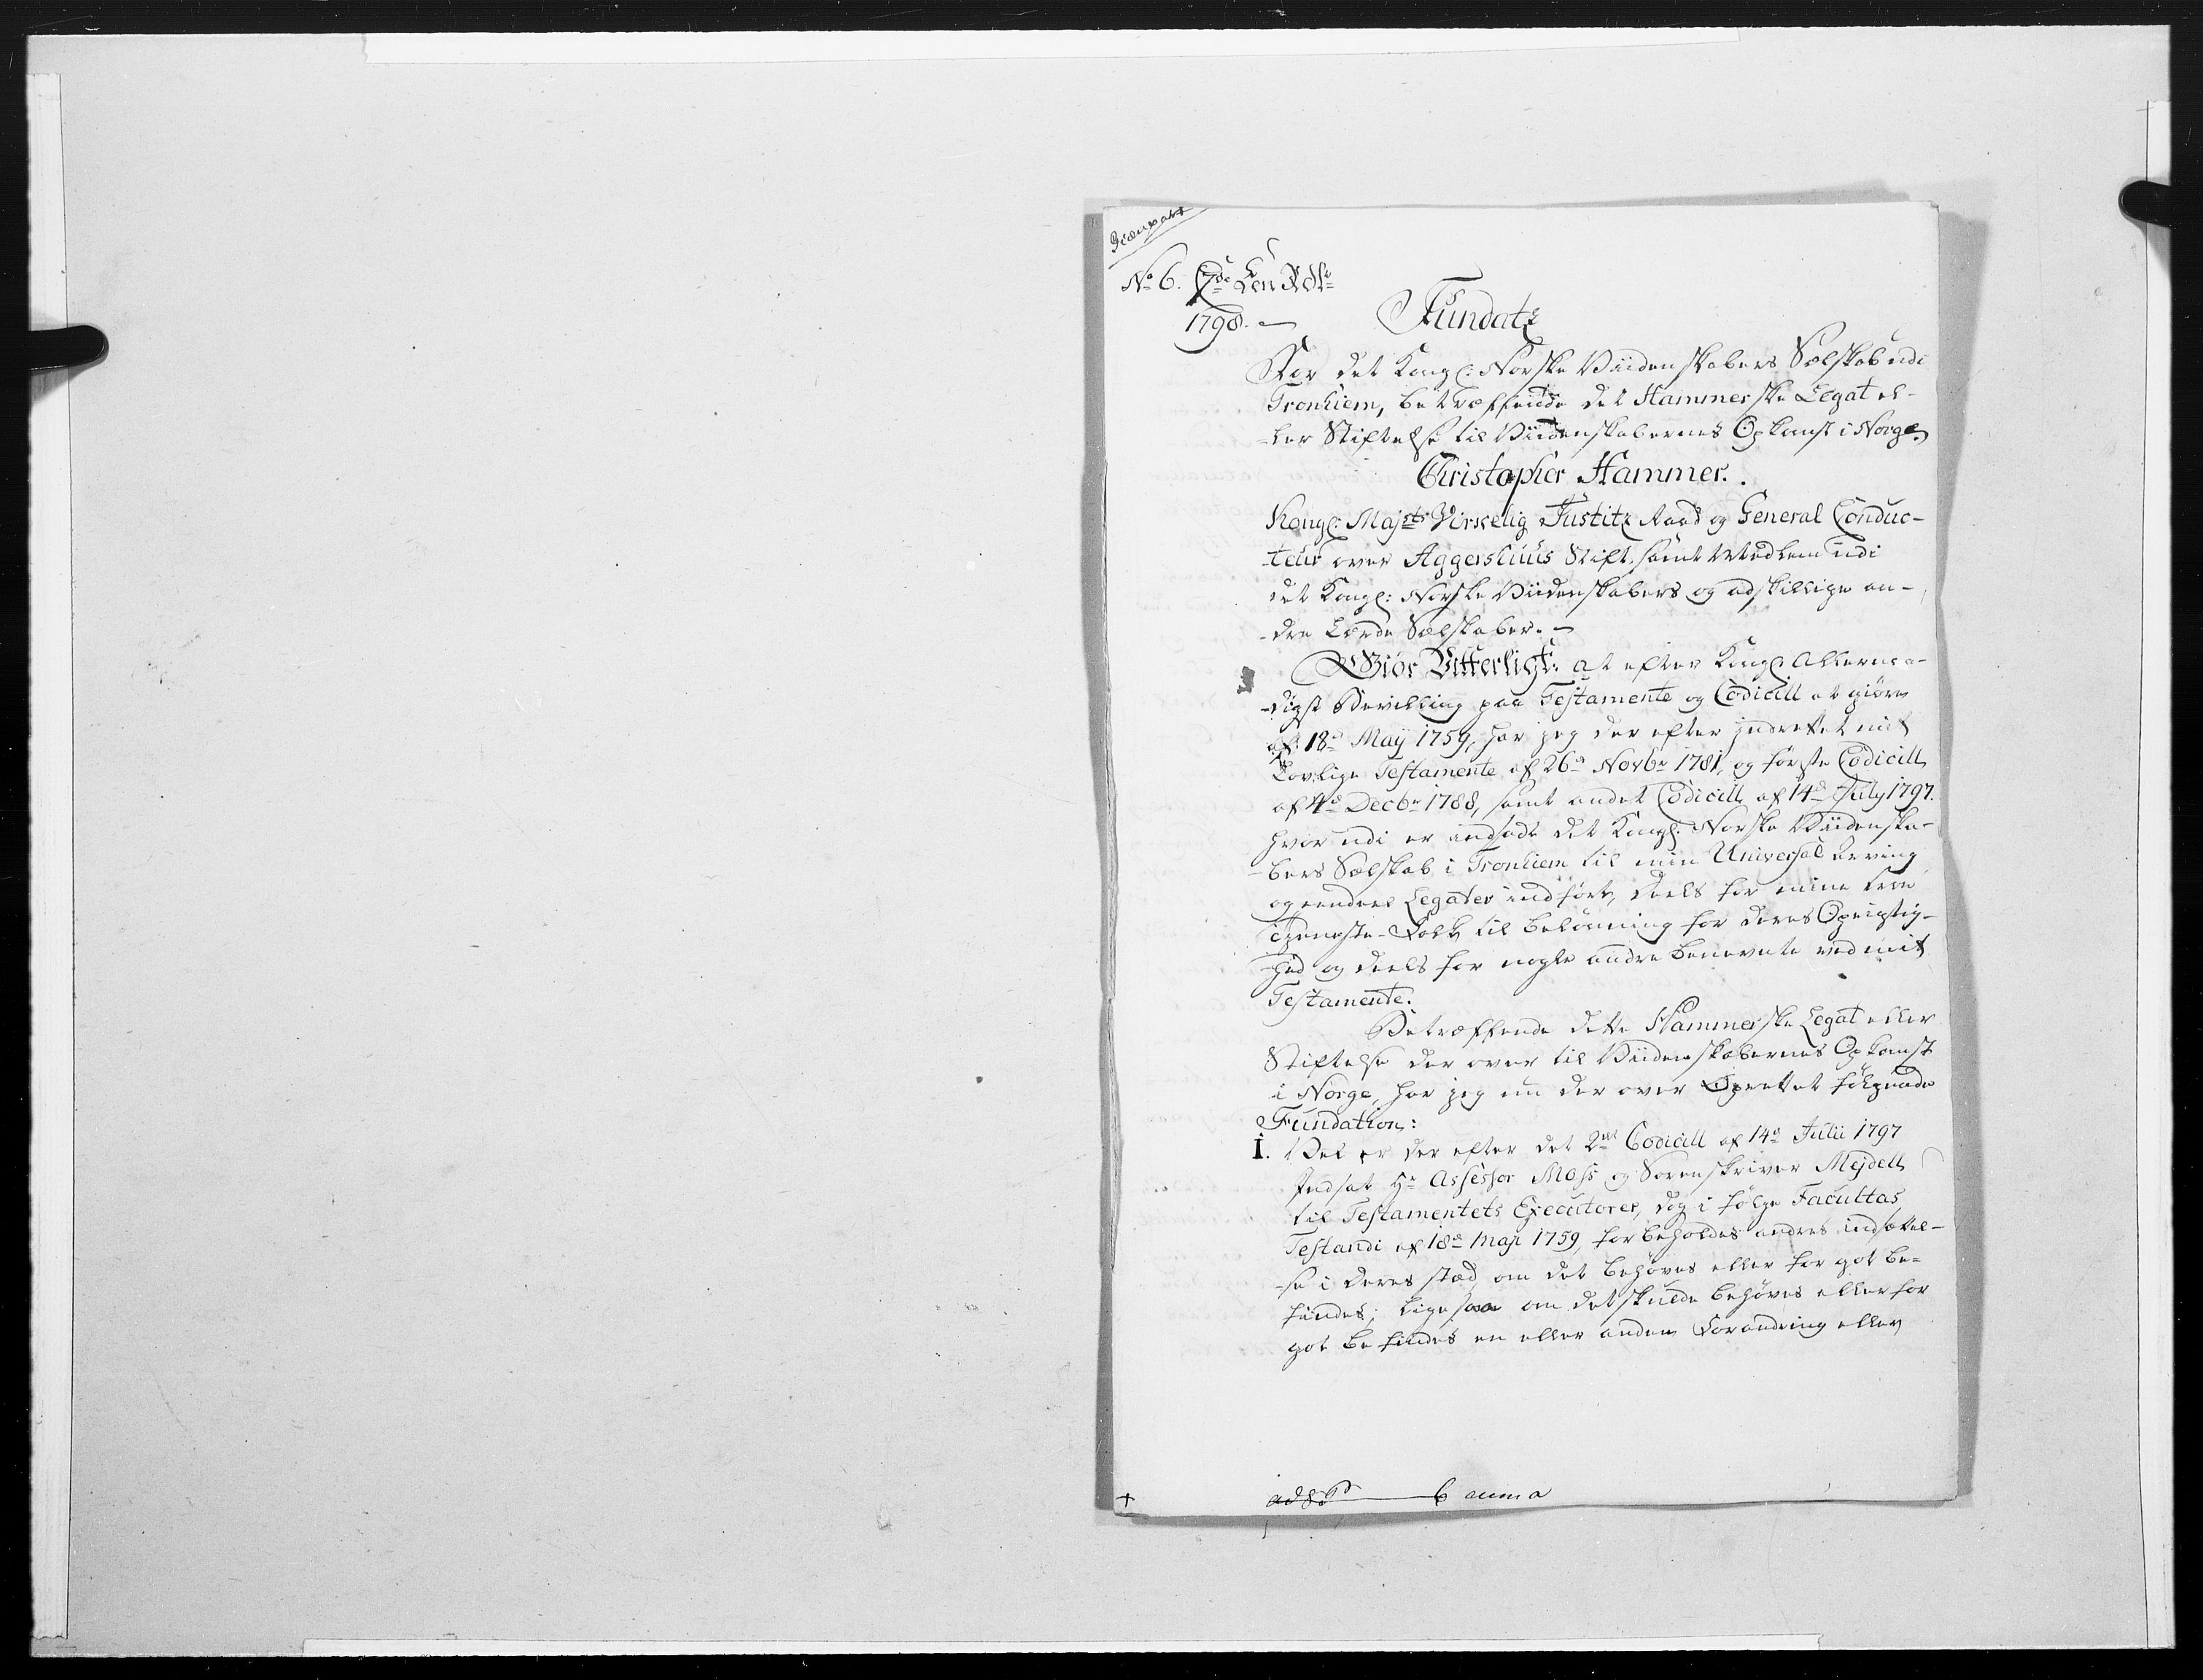 Gienpart
No 6.
1798.
Fundatz
For det Kongl: Norske Viidenskabers Sælskab udi
Tronhiem, betræffende det Hammerske Legat el-
-ler Stiftelse til Viidenskabernes Opkomst i Norge
Christopher Hammer.
Kongl: Majsts Virkelig Justitz Raad og General Conduc-
-teur over Aggershuus Stift, samt Medlem udi
det Kongl: Norske Viidenskabers og adskillige an-
-dre Lærde Sælskaber.
Giör Vitterligt: at efter Kongl Allernaa-
-digst Bevilling paa Testamente og Codicill at giöre
af 18de Maij 1759, har jeg der efter indrettet mit
Lovlige Testamente af 26de Novbr 1781, og förste Codicill
af 4de Decbr 1788, samt andet Codicill af 14de July 1797.
hvor udi er indsadt det Kongl: Norske Viidenska-
-bers Sælskab i Tronhiem til min Universal Arving
og eendeel Legater indfört, deels for mine troe
Tieneste-Folk til belönning for deres Oprigtig-
-hed og deels for nogle andre benevnte ved mit
Testamente.
Betræffende dette Hammerske Legat eller
Stiftelse der over til Viidenskabernes Opkomst
i Norge, har jeg nu der over Oprettet fölgende
Fundation:
I. Vel er der efter det 2det Codicill af 14de Julii 1797
Indsat Hr Assessor Moss og Sorenskriver Mejdell
til Testamentets Executorer, dog i fölge Facultas
Testandi af 18de Maji 1759, forbeholdes andres indsættel-
-se i deres stæd, om det behöves eller for got be-
findes; ligesaa om det skulde behöves eller for
got befindes en eller anden Forandring eller